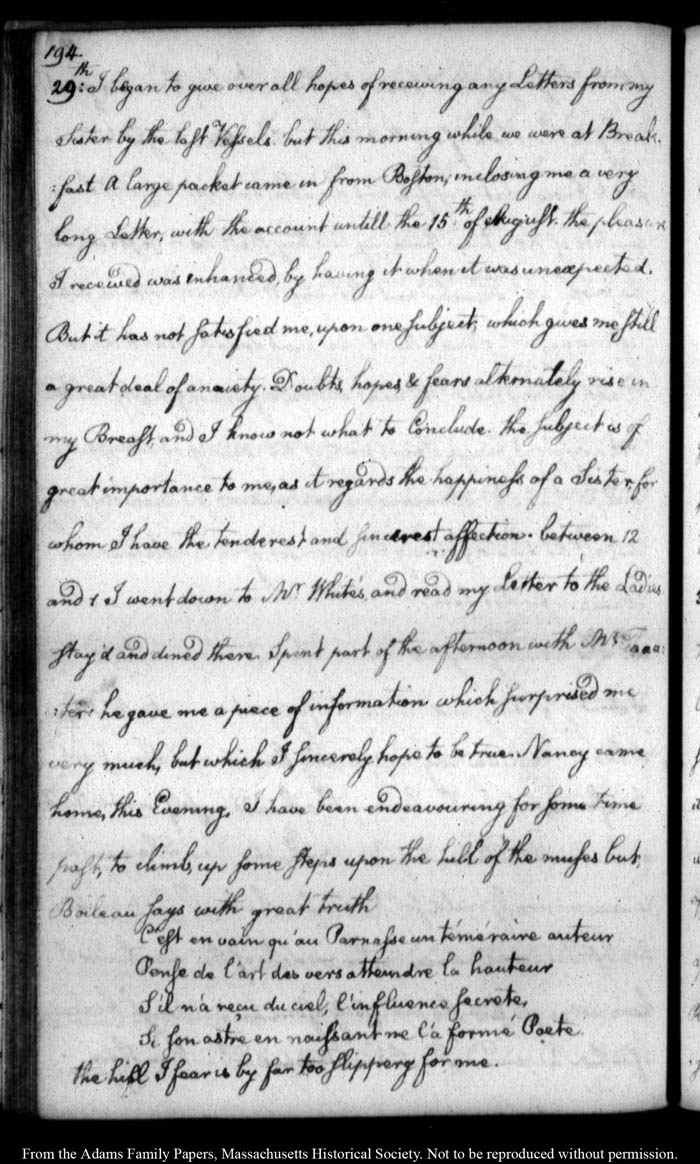 194.
29.th: I began to give over all hopes of receiving any Letters from my
Sister by the last Vessels. but this morning while we were at Break-
:fast A large packet came in from Boston, inclosing me a very
long Letter, with the account untill the 15.th of August. the pleasure
I received was enhanced, by having it when it was unexpected.
But it has not satisfied me, upon one subject, which gives me still
a great deal of anxiety. Doubts, hopes, & fears alternately rise in
my Breast and I know not what to Conclude. the subject is of
great importance to me, as it regards the happiness of a Sister, for
whom I have the tenderest and sincerest affection. between 12
and 1 I went down to Mr. White's, and read my Letter to the Ladies
stay'd and dined there. Spent part of the afternoon with Mr.
:ter: he gave me a piece of information which surprised me
very much, but which I sincerely hope to be true. Nancy came
home, this Evening. I have been endeavouring for some time
past, to climb, up some steps upon the hill of the muses but,
Boileau says with great truth
C'est en vain qu'au Parnasse un téméraire auteur
Pense de l'art des vers atteindre la hauteur
S'il n'a reçu du ciel, l'influence secrete,
Si son astre en naissant ne l'a formé Poete.
the hill I fear is by far too slippery for me.
From the Adams Family Papers, Massachusetts Historical Society. Not to be reproduced without permission.